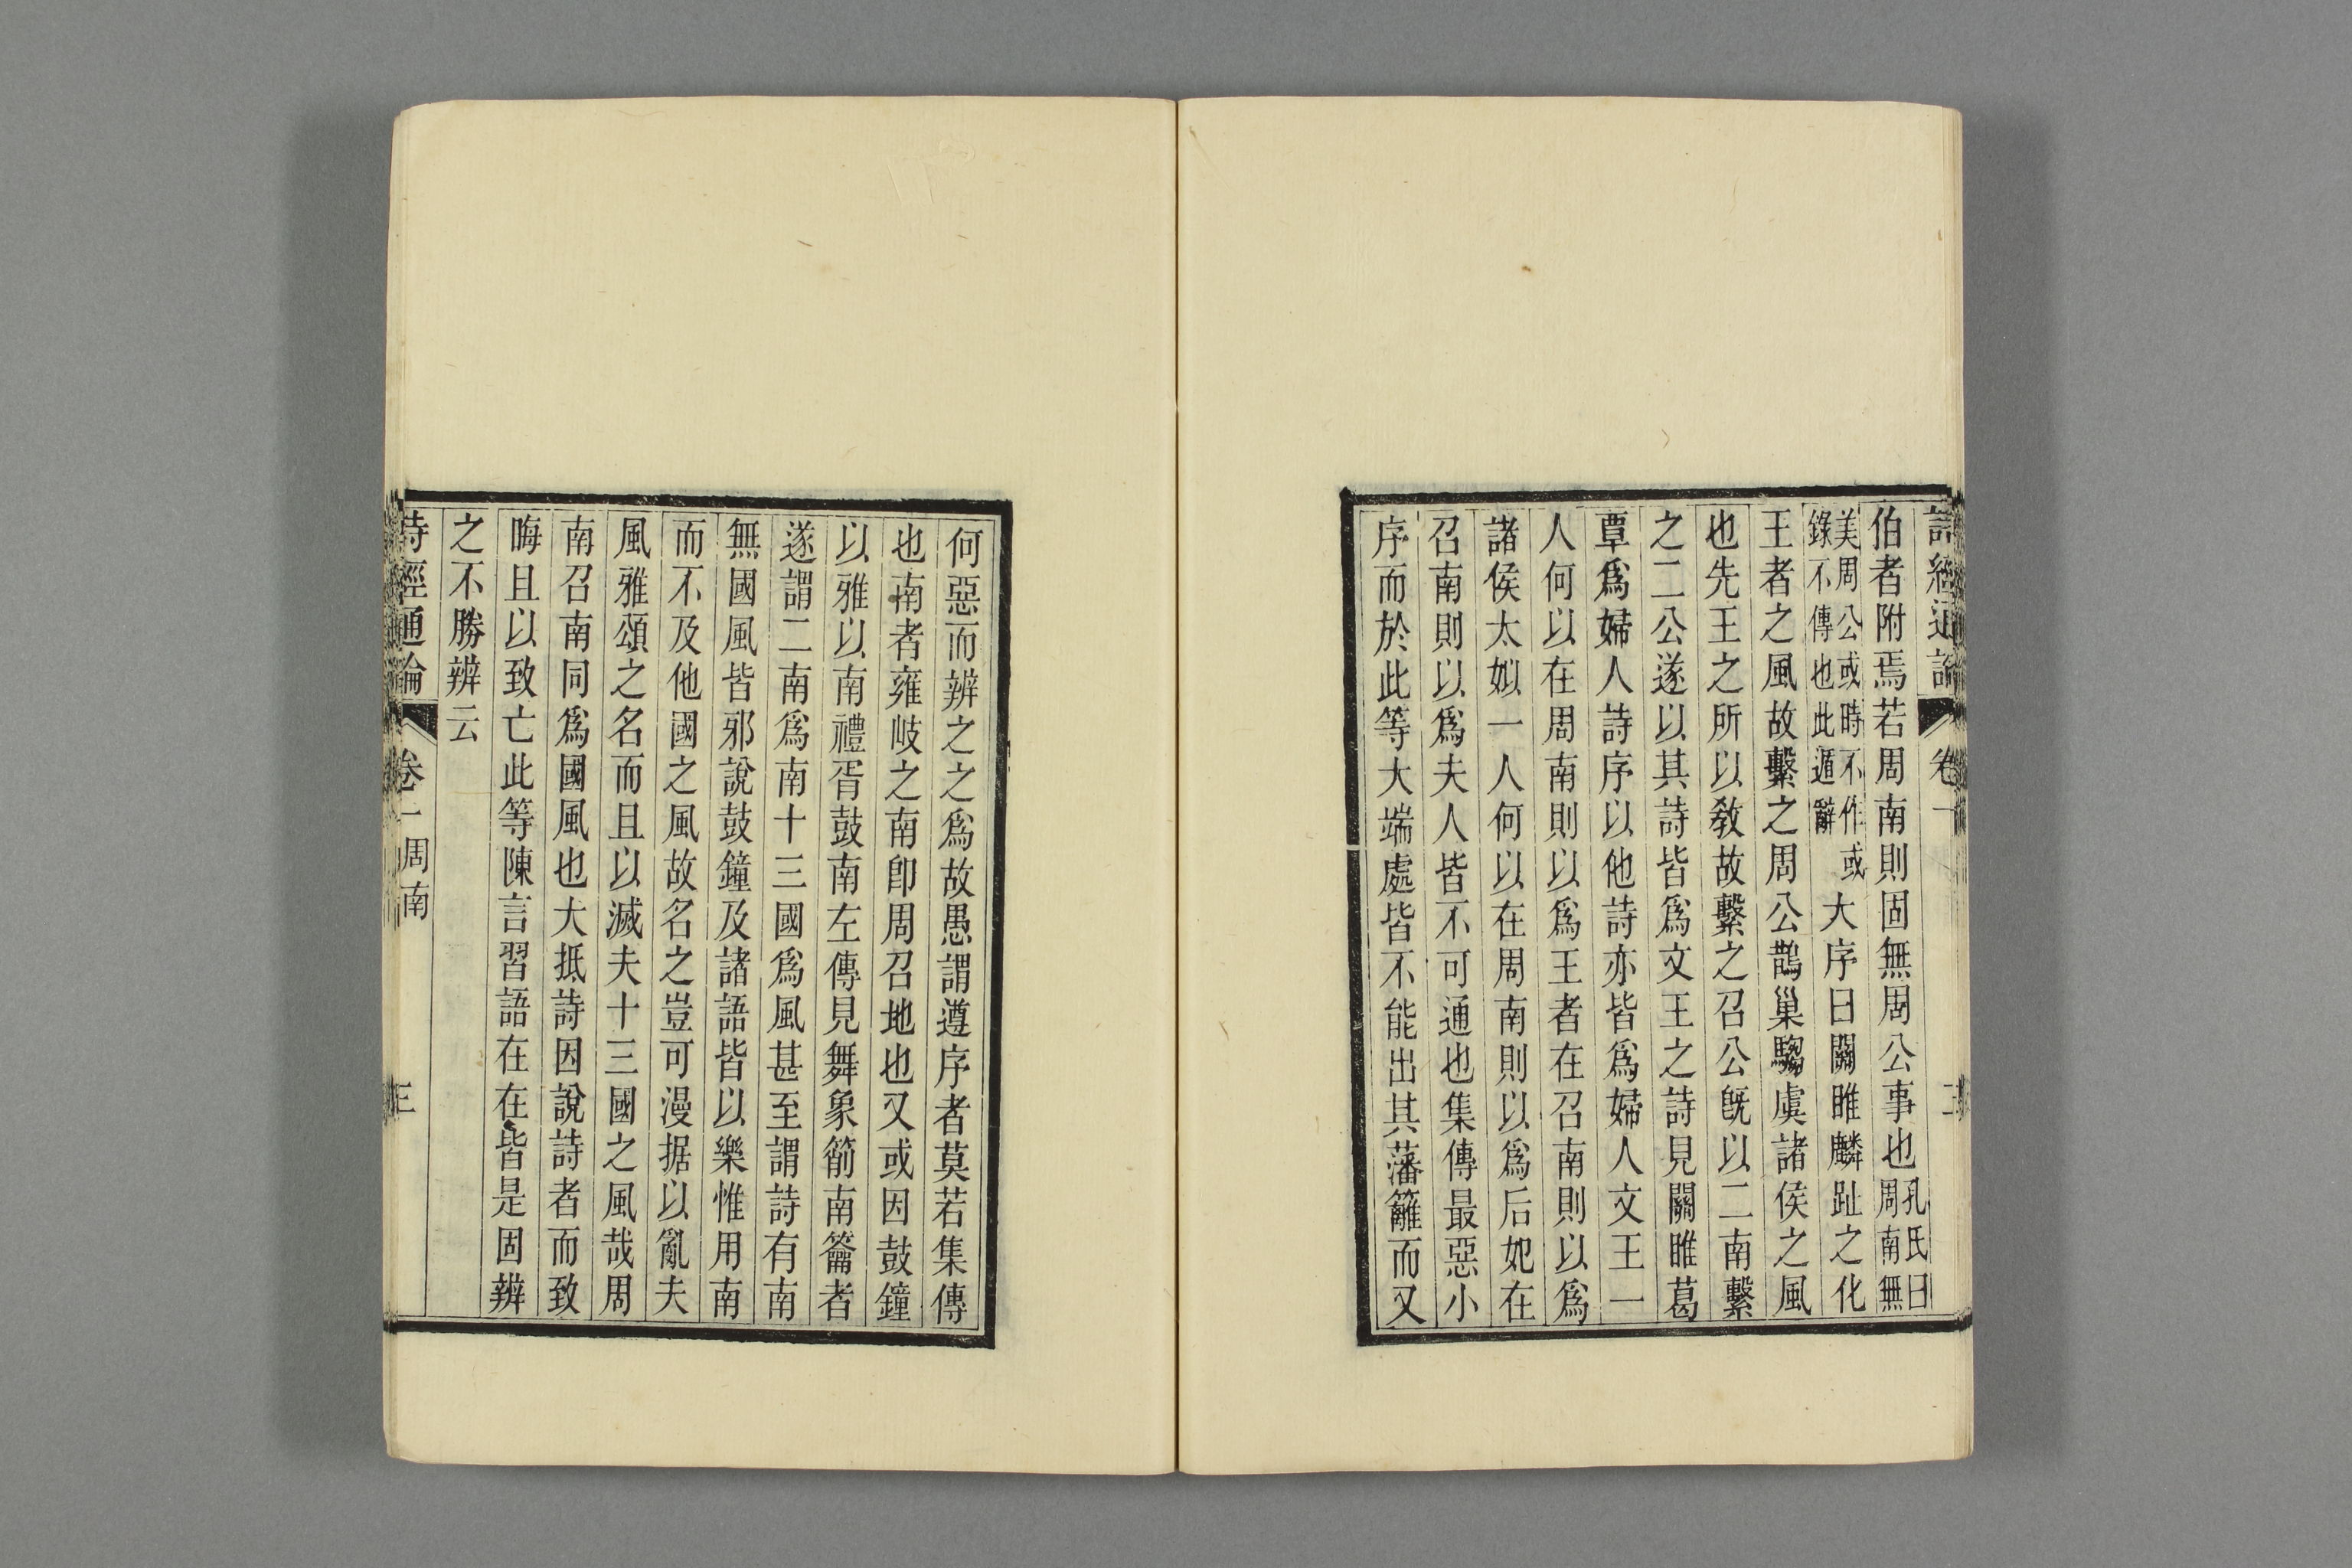 詩經通論 卷一 二
伯者附焉若周南則固無周公事也孔氏曰周南無
美周公或時不作或錄不傳也此遁辭大序曰關雎麟趾之化
王者之風故繫之周公鵲巢騶虞諸侯之風
也先王之所以敎故繫之召公旣以二南繫
之二公遂以其詩皆爲文王之詩見關雎葛
覃爲婦人詩序以他詩亦皆爲婦人文王一
人何以在周南則以爲王者在召南則以爲
諸侯太姒一人何以在周南則以爲后妃在
召南則以爲夫人皆不可通也集傳最惡小
序而於此等大端處皆不能出其藩籬而又
何惡而辨之之爲故愚謂遵序者莫若集傳
也南者雍岐之南卽周召地也又或因鼓鐘
以雅以南禮胥鼓南左傳見舞象箾南籥者
遂謂二南爲南十三國爲風甚至謂詩有南
無國風皆邪說鼓鐘及諸語皆以樂惟用南
而不及他國之風故名之豈可漫据以亂夫
風雅頌之名而且以滅夫十三國之風哉周
南召南同爲國風也大抵詩因說詩者而致
晦且以致亡此等陳言習語在在皆是固辨
之不勝辨云
詩經通論 卷一周南 三